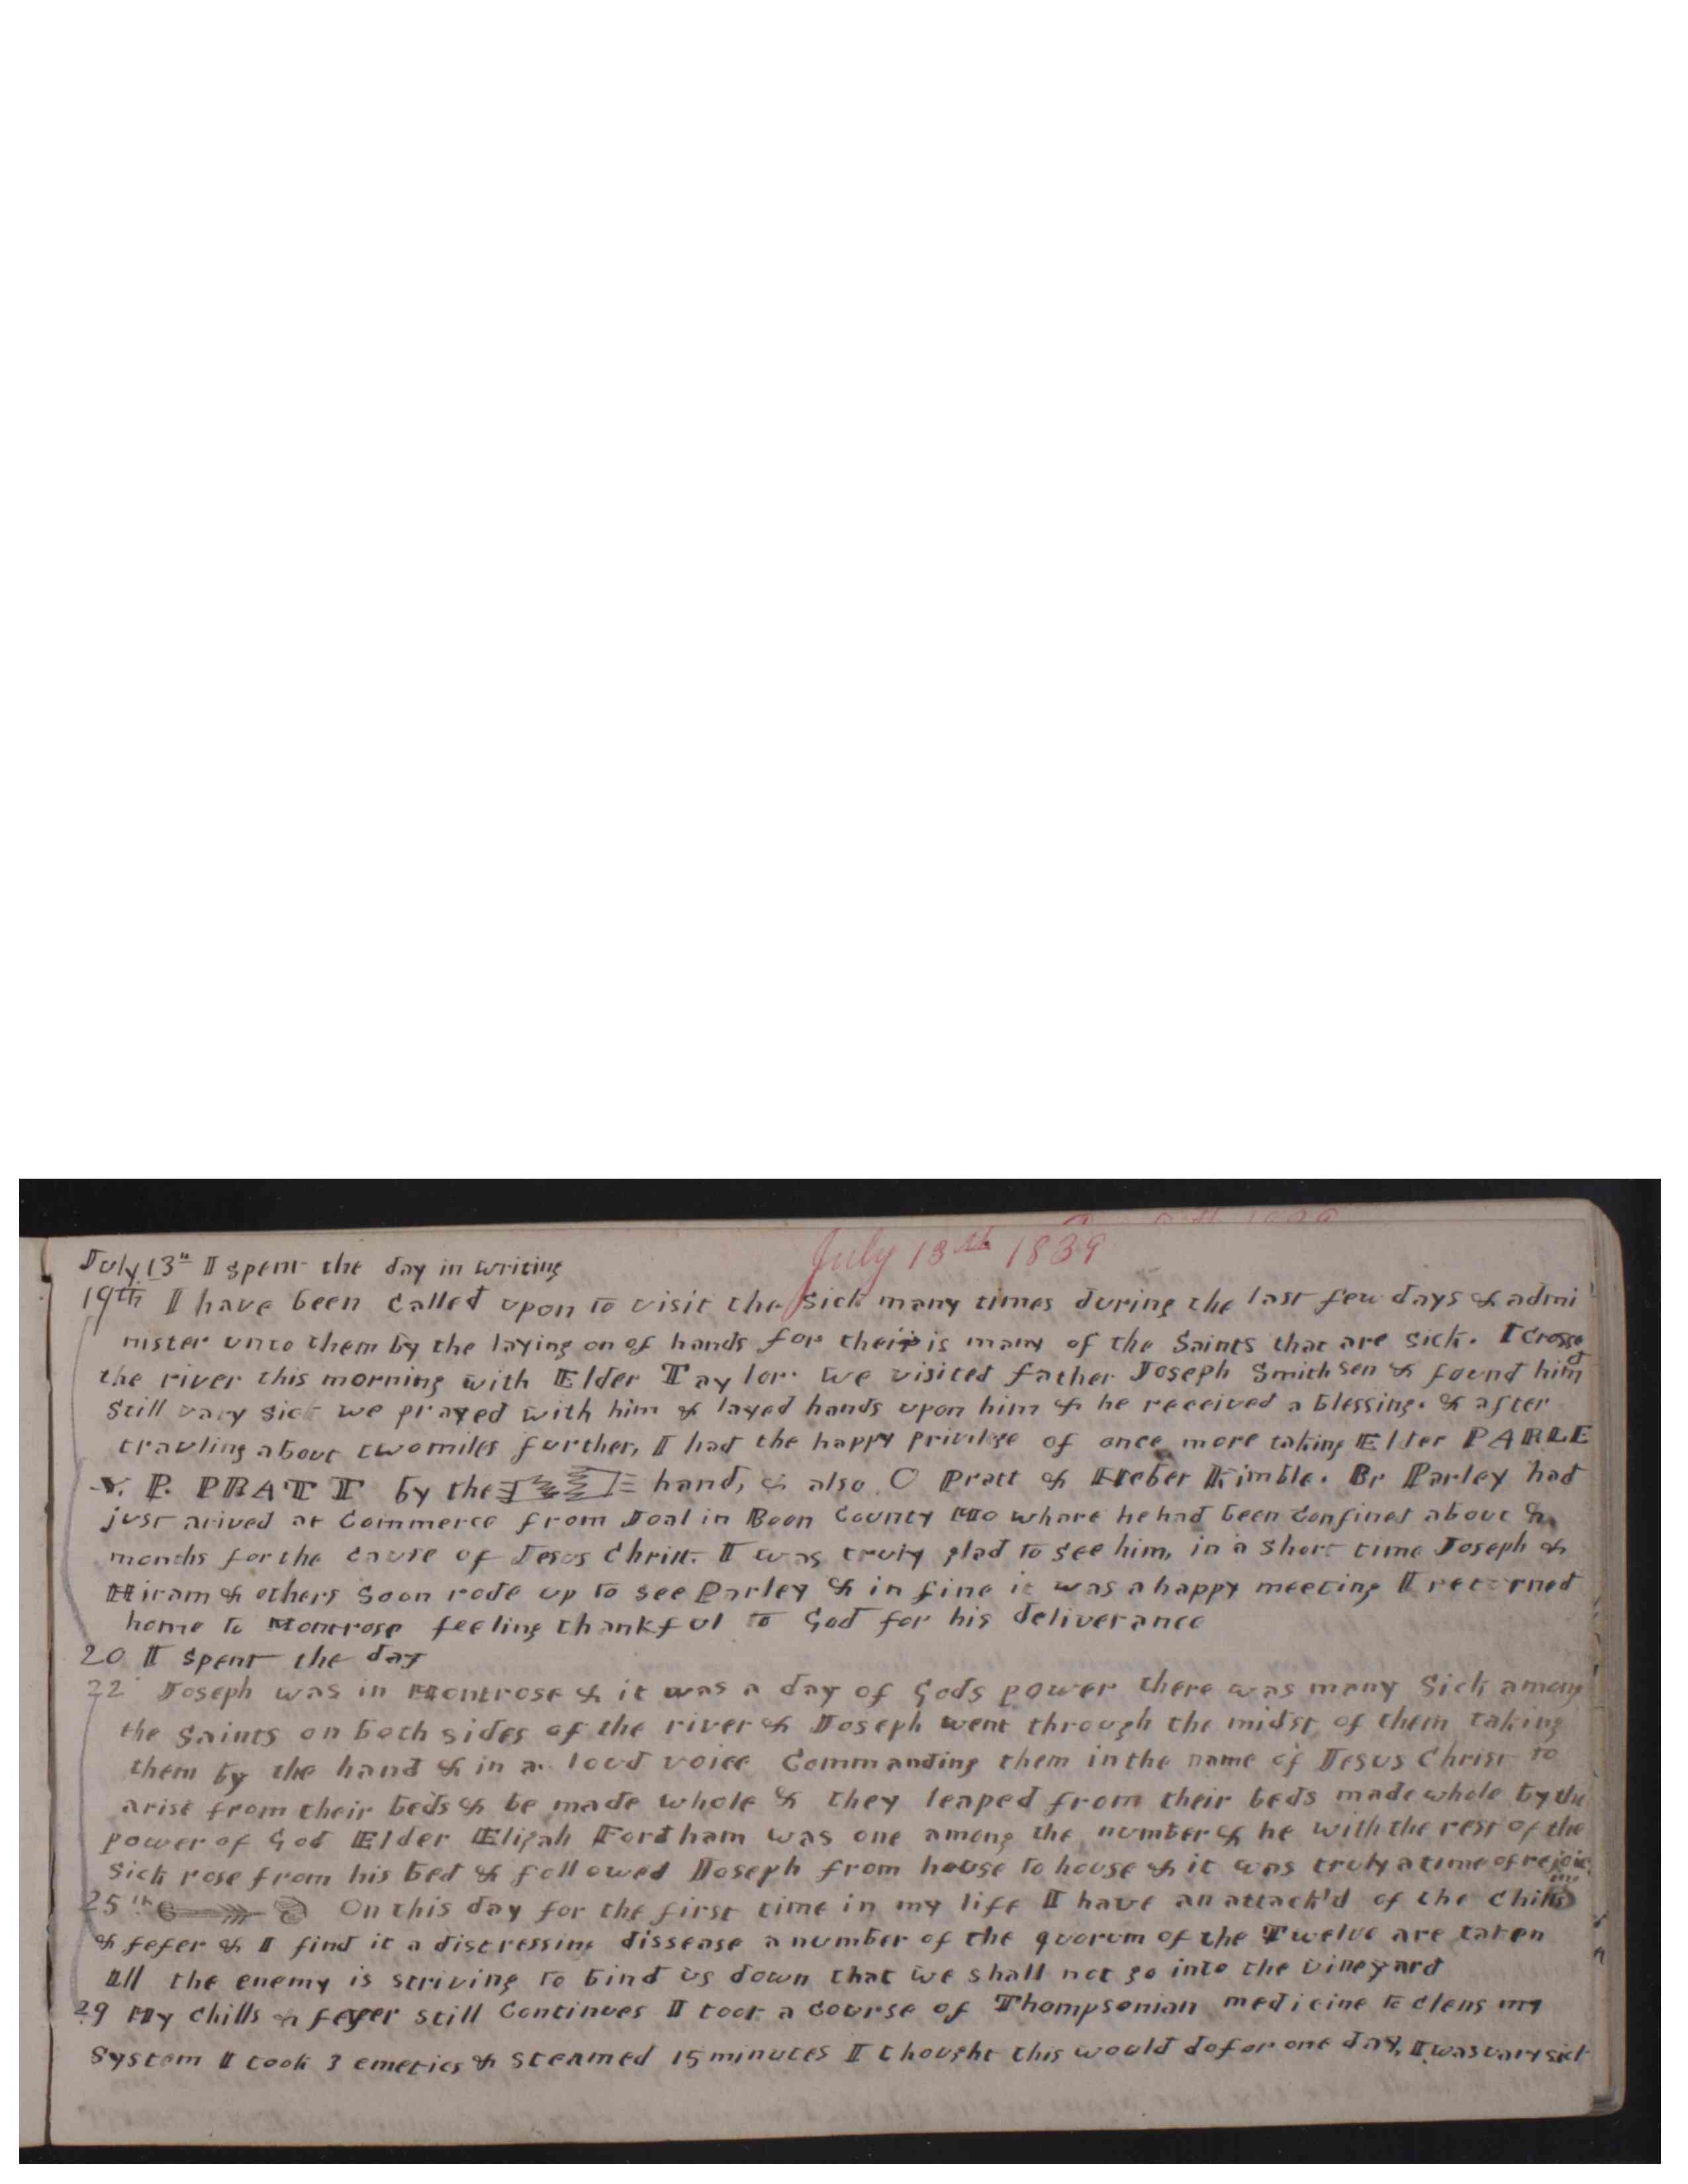 July 13th 1839
July 13th I spent the day in writing
19th I have been Called upon to visit the Sick many times during the last few days & admi
nister unto them by the laying on of hands for their is many of the Saints that are sick. I Crossed
the river this morning with Elder Taylor. we visited father Joseph Smith sen & found him
still vary sick we prayed with him & layed hands upon him & he received a blessing. & after
travling about two miles further, I had the happy privilege of once more taking Elder PARLE
Y. P. PRATT by the hand, & also O Pratt & Heber Kimble. Br Parley had
just arived at Commerce from Joal in Boon County Mo whare he had been Confined about
months for the Cause of Jesus Christ. I was truly glad to see him, in a short time Joseph &
Hiram & others Soon rode up to see Parley & in fine it was a happy meeting I returned
home to Montrose feeling thankful to God for his deliverance
20 I spent the day
22 Joseph was in Montrose & it was a day of Gods power there was many Sick among
the Saints on both sides of the river & Joseph went through the midst of them taking
them by the hand & in a loud voice Commanding them in the name of Jesus Christ to
arise from their beds & be made whole & they leaped from their beds made whole by the
power of God Elder Elijah Fordham was one among the number & he with the rest of the
sick rose from his bed & followed Joseph from house to house & it was truly a time of rejoic
ing
25th On this day for the first time in my life I have an attack'd of the Chills
& fefer & I find it a distressing dissease a number of the quorum of the Twelve are taken
All the enemy is striving to bind us down that we shall not go into the vineyard
29 My Chills & fever still Continues I took a Course of Thompsonian medicine to clens my
system I took 3 emetics & steamed 15 minutes I thought this would do for one day, I was vary sick